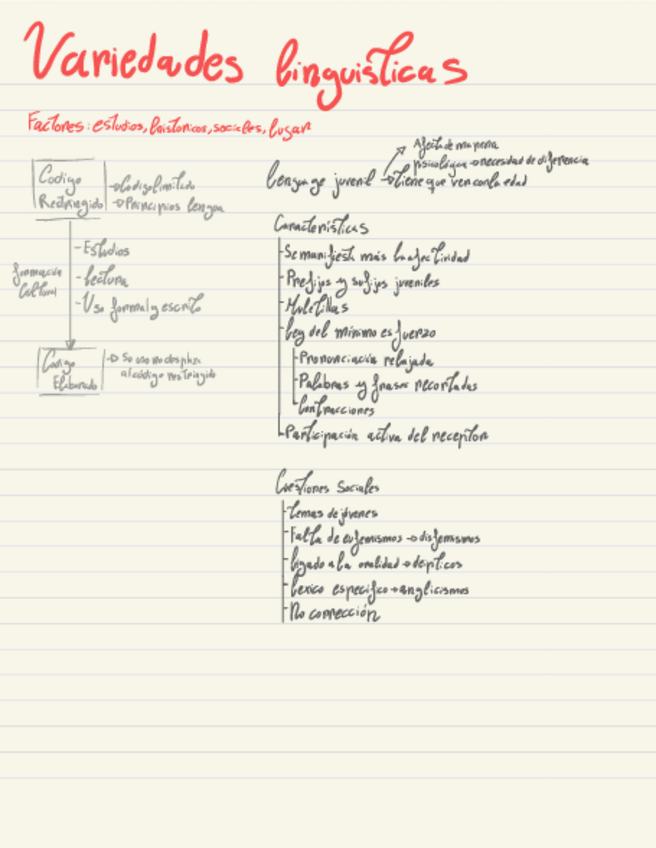 Variedades linguisticas
Factores: estudios, historicos, sociales, lugar
Codigo
Restringido
→Codigo limitado
→Principios lengua
formación
Cultural
- Estudios
- Lectura
- Uso formal y escrito
Codigo
Elaborado
→ Su uso no desplaza
al código restringido
Lenguage juvenil
Afecta de manera
psicológica → necesidad de diferencia
→ tiene que ver con la edad
Características
- Se manifiesta más la afectividad
- Prefijos y sufijos juveniles
- Muletillas
- Ley del mínimo esfuerzo
- Pronunciación relajada
- Palabras y frases recortadas
- Contracciones
- Participación activa del receptor
Cuestiones Sociales
- temas de jóvenes
- Falta de eufemismos → disfemismos
- ligado a la oralidad → deípticos
- léxico específico → anglicismos
- No corrección